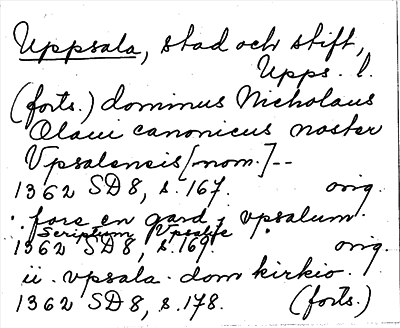 Uppsala, stad och stift,
Upps. l.
(forts.) dominus Nicholaus
Olaui canonicus noster
Vpsalensis [nom.] --
1362 SD 8, s. 167. orig.
. fore en gard j vpsalum.
Scriptum Vpsalie .
1362 SD 8, s. 169. orig.
ii. vpsala. dom kirkio.
1362 SD 8, s. 178. (forts.)